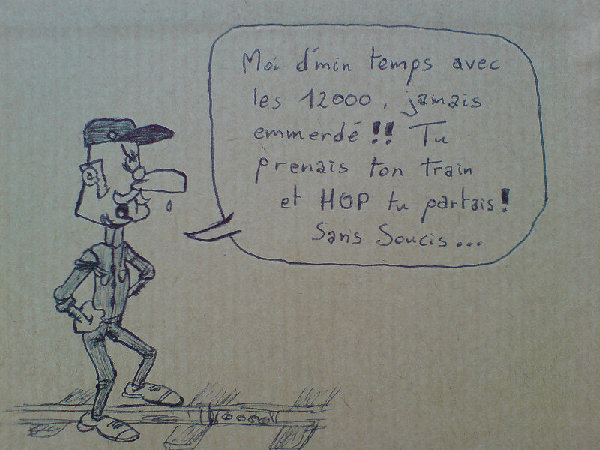 Moi d'min temps avec
les 12000, jamais
emmerdé !! Tu
prenais ton train
et HOP tu partais !
Sans Soucis...